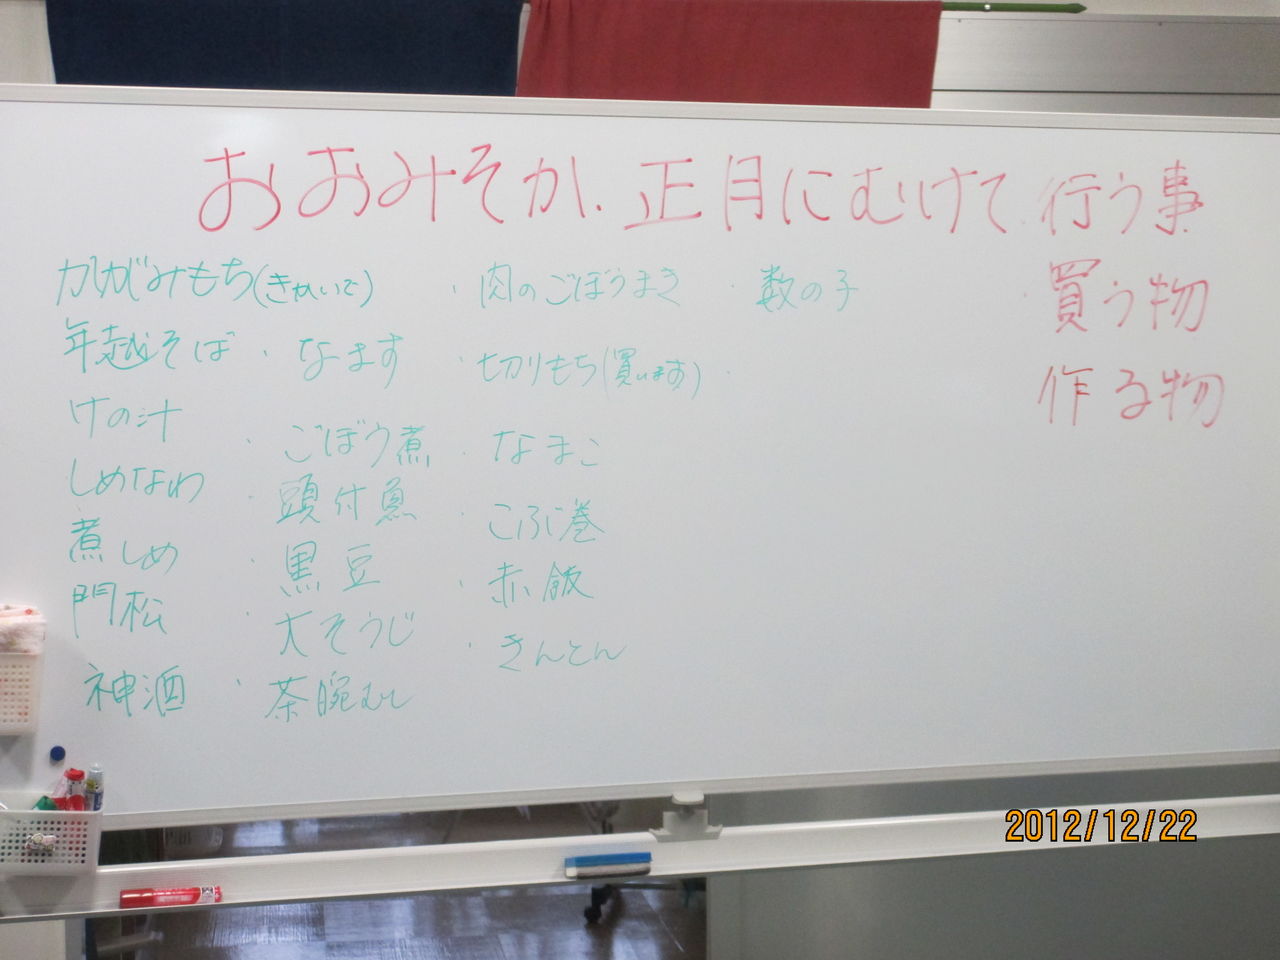 おおみそか、正月にむけて 行う事
買う物
作る物
かがみもち(きかいで)
年越そば
けの汁
しめなわ
煮しめ
門松
神酒
・なます
・ごぼう煮
・頭付魚
・黒豆
・大そうじ
・茶腕むし
・肉のごぼうまき
・切りもち(買います)
・なまこ
・こぶ巻
・赤飯
・きんとん
・数の子
・
2012/12/22